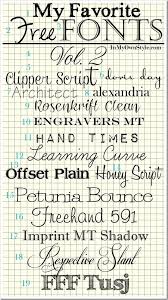 My Favorite
Free FONTS
InMyOwnStyle.com
Vol. 2
Clipper Script 6 dover day
Architect 8 alexandria
9 Rosenkrift Clean
10 ENGRAVERS MT
11 HAND TIMES
12 Learning Curve
Offset Plain Honey Script
15 Petunia Bounce
16 Freehand 591
17 Imprint MT Shadow
18 Respective Slant
19 FFF Tusj